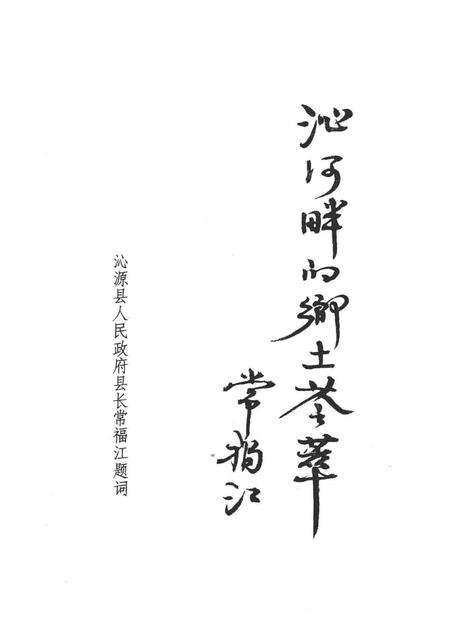 沁河畔的鄉土荟萃
常福江
沁源县人民政府县长常福江题词